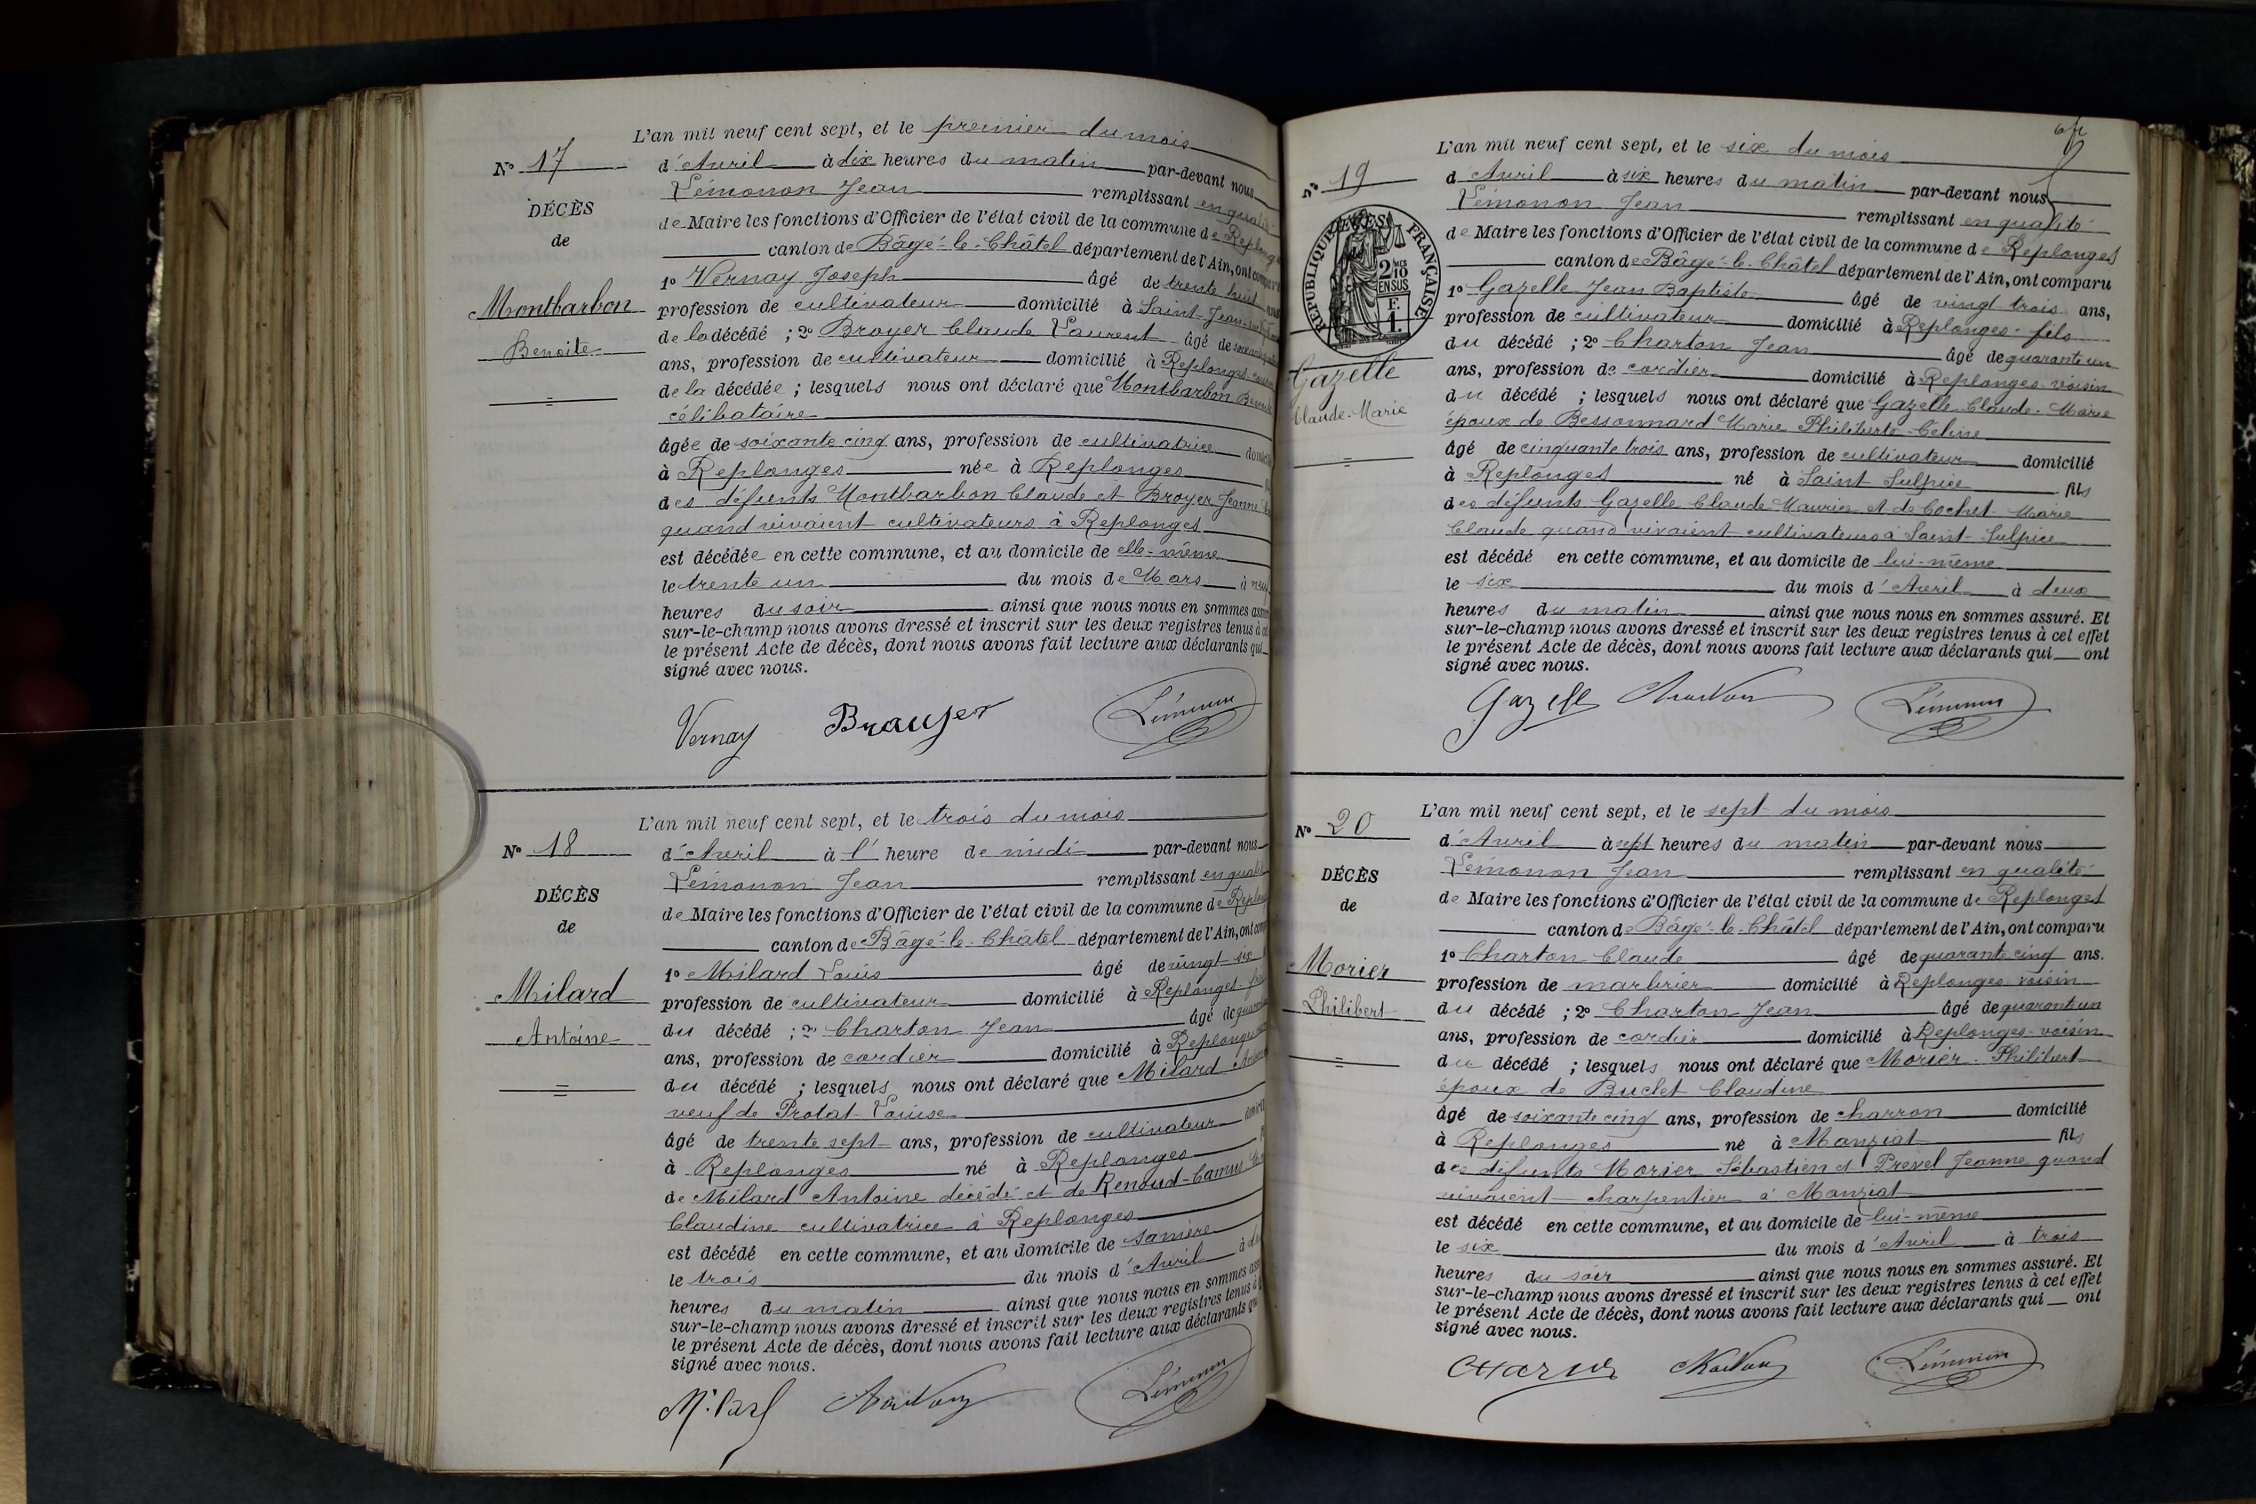 N° 17
DÉCÈS
de
Montbarbon
Benoite
L'an mil neuf cent sept, et le premier du mois
d'Avril à dix heures du matin par-devant nous
Lémonon Jean remplissant en qualité
de Maire les fonctions d'Officier de l'état civil de la commune de Replonges
canton de Bâgé-le-Châtel département de l'Ain, ont comparu
1° Vernay Joseph âgé de trente huit ans
profession de cultivateur domicilié à Saint-Jean
de la décédé ; 2° Broyer Claude Laurent âgé de
ans, profession de cultivateur domicilié à Replonges
de la décédée ; lesquels nous ont déclaré que Montbarbon Benoite
célibataire
âgée de soixante cinq ans, profession de cultivatrice domicilié
à Replonges née à Replonges
des défunts Montbarbon Claude et Broyer Jeanne
quand vivaient cultivateurs à Replonges
est décédée en cette commune, et au domicile de elle-même
le trente un du mois de Mars à neuf
heures du soir ainsi que nous nous en sommes assuré
sur-le-champ nous avons dressé et inscrit sur les deux registres tenus à cet
le présent Acte de décès, dont nous avons fait lecture aux déclarants qui
signé avec nous.
Vernay Brauyer Lémonon
N° 18
DÉCÈS
de
Milard
Antoine
L'an mil neuf cent sept, et le trois du mois
d'Avril à l'heure de midi par-devant nous
Lémonon Jean remplissant en qualité
de Maire les fonctions d'Officier de l'état civil de la commune de Replonges
canton de Bâgé-le-Châtel département de l'Ain, ont comparu
1° Milard Louis âgé de vingt-six
profession de cultivateur domicilié à Replonges frère
du décédé ; 2° Charton Jean âgé de quarante
ans, profession de cordier domicilié à Replonges
du décédé ; lesquels nous ont déclaré que Milard Antoine
veuf de Protat Louise
âgé de trente sept ans, profession de cultivateur domicilié
à Replonges né à Replonges
de Milard Antoine décédé et de Renoud-Camus
Claudine cultivatrice à Replonges
est décédé en cette commune, et au domicile de sa mère
le trois du mois d'Avril à
heures du matin ainsi que nous nous en sommes assuré
sur-le-champ nous avons dressé et inscrit sur les deux registres tenus à
le présent Acte de décès, dont nous avons fait lecture aux déclarants qui
signé avec nous.
Milard Charton Lémonon
N° 19
RÉPUBLIQUE FRANÇAISE
2/10 EN SUS
F. 1.
Gazelle
Claude-Marie
L'an mil neuf cent sept, et le six du mois
d'Avril à six heures du matin par-devant nous
Lémonon Jean remplissant en qualité
de Maire les fonctions d'Officier de l'état civil de la commune de Replonges
canton de Bâgé-le-Châtel département de l'Ain, ont comparu
1° Gazelle Jean Baptiste âgé de vingt trois ans,
profession de cultivateur domicilié à Replonges fils
du décédé ; 2° Charton Jean âgé de quarante un
ans, profession de cordier domicilié à Replonges voisin
du décédé ; lesquels nous ont déclaré que Gazelle Claude-Marie
époux de Bessonnard Marie Philiberte Celine
âgé de cinquante trois ans, profession de cultivateur domicilié
à Replonges né à Saint Sulpice fils
des défunts Gazelle Claude Maurice et de Cochet Marie
Claude quand vivaient cultivateurs à Saint-Sulpice
est décédé en cette commune, et au domicile de lui-même
le six du mois d'Avril à deux
heures du matin ainsi que nous nous en sommes assuré. Et
sur-le-champ nous avons dressé et inscrit sur les deux registres tenus à cet effet
le présent Acte de décès, dont nous avons fait lecture aux déclarants qui ont
signé avec nous.
Gazelle Charton Lémonon
N° 20
DÉCÈS
de
Morier
Philibert
L'an mil neuf cent sept, et le sept du mois
d'Avril à sept heures du matin par-devant nous
Lémonon Jean remplissant en qualité
de Maire les fonctions d'Officier de l'état civil de la commune de Replonges
canton de Bâgé-le-Châtel département de l'Ain, ont comparu
1° Charton Claude âgé de quarante cinq ans.
profession de marbrier domicilié à Replonges voisin
du décédé ; 2° Charton Jean âgé de quarante un
ans, profession de cordier domicilié à Replonges voisin
du décédé ; lesquels nous ont déclaré que Morier Philibert
époux de Buchet Claudine
âgé de soixante cinq ans, profession de charron domicilié
à Replonges né à Manziat fils
des défunts Morier Sébastien et Prevel Jeanne quand
vivaient charpentier à Manziat
est décédé en cette commune, et au domicile de lui-même
le six du mois d'Avril à trois
heures du soir ainsi que nous nous en sommes assuré. Et
sur-le-champ nous avons dressé et inscrit sur les deux registres tenus à cet effet
le présent Acte de décès, dont nous avons fait lecture aux déclarants qui ont
signé avec nous.
Charton Charton Lémonon